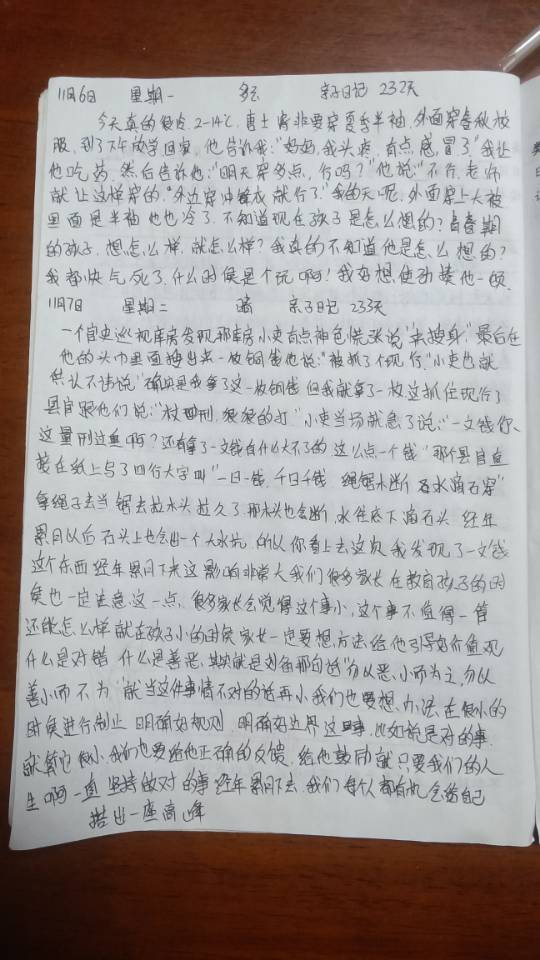 11月6日 星期一 多云 亲子日记 232天
今天真的很冷, 2-14℃, 博士肯非要穿夏季半袖, 外面穿春秋校
服, 到了下午放学回家, 他告诉我:"妈妈, 我头疼, 有点感冒了"我让
他吃药, 然后告诉他:"明天穿多点, 行吗?"他说:"不行, 老师
就让这样穿的, 外边穿冲锋衣就行了."我的天呢, 外面穿上大被
里面是半袖他也冷了, 不知道现在孩子是怎么想的? 青春期
的孩子, 想怎么样, 就怎么样? 我真的不知道他是怎么想的?
我都快气死了, 什么时候是个完啊! 我好想使劲揍他一顿.
11月7日 星期二 晴 亲子日记 233天
一个官吏巡视库房发现那库房小吏有点神色慌张说"去搜身", 最后在
他的头巾里面搜出来一枚铜钱他说:"被抓了个现行,"小吏也就
供认不讳说"确实是我拿了这一枚铜钱但我就拿了一枚这抓住现行了
县官跟他们说:"杖四刑, 狠狠的打"小吏当场就急了说:"一文钱你
这量刑过重啊? 还有拿了一文钱有什么大不了的 这么点一个钱"那个县官直
接在纸上写了四行大字叫"一日一钱, 千日千钱 绳锯木断 水滴石穿"
拿绳子去当锯去拉木头拉久了, 那木头也会断, 水往底下滴石头 经年
累月以后石头上也会出一个大水坑, 所以你看上去这次我发现了一文钱
这个东西经年累月下来这影响非常大我们很多家长在教育孩子的时
候也一定注意这一点, 很多家长会觉得这个事小, 这个事不值得一管
还能怎么样就在孩子小的时候家长一定要想方法给他引导好价值观
什么是对错 什么是善恶, 其实就是刘备那句话"勿以恶小而为之, 勿以
善小而不为"就当这件事情不对的话再小我们也要想办法在很小的
时候进行制止 明确好规则 明确好边界这事, 比如说是对的事
就算它很小, 我们也要给他正确的反馈, 给他鼓励就只要我们的人
生啊一直坚持做对的事经年累月下去, 我们每个人都有机会给自己
搭出一座高峰